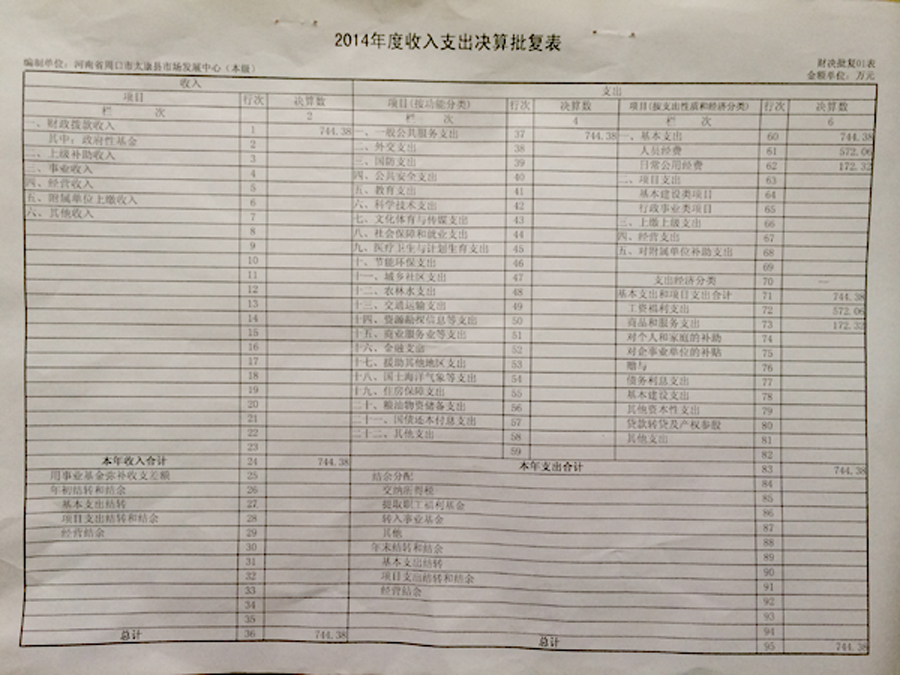 2014年度收入支出决算批复表
财决批复01表
编制单位：河南省周口市太康县市场发展中心（本级） 金额单位：万元
收入 支出
项目 行次 决算数 项目（按功能分类） 行次 决算数 项目（按支出性质和经济分类） 行次 决算数
栏 次 2 栏 次 4 栏 次 6
一、财政拨款收入 1 744.38 一、一般公共服务支出 37 744.38 一、基本支出 60 744.38
其中：政府性基金 2 二、外交支出 38 人员经费 61 572.06
二、上级补助收入 3 三、国防支出 39 日常公用经费 62 172.32
三、事业收入 4 四、公共安全支出 40 二、项目支出 63
四、经营收入 5 五、教育支出 41 基本建设类项目 64
五、附属单位上缴收入 6 六、科学技术支出 42 行政事业类项目 65
六、其他收入 7 七、文化体育与传媒支出 43 三、上缴上级支出 66
8 八、社会保障和就业支出 44 四、经营支出 67
9 九、医疗卫生与计划生育支出 45 五、对附属单位补助支出 68
10 十、节能环保支出 46 69
11 十一、城乡社区支出 47 支出经济分类 70
12 十二、农林水支出 48 基本支出和项目支出合计 71 744.38
13 十三、交通运输支出 49 工资福利支出 72 572.06
14 十四、资源勘探信息等支出 50 商品和服务支出 73 172.32
15 十五、商业服务业等支出 51 对个人和家庭的补助 74
16 十六、金融支出 52 对企事业单位的补贴 75
17 十七、援助其他地区支出 53 赠与 76
18 十八、国土海洋气象等支出 54 债务利息支出 77
19 十九、住房保障支出 55 基本建设支出 78
20 二十、粮油物资储备支出 56 其他资本性支出 79
21 二十一、国债还本付息支出 57 贷款转贷及产权参股 80
22 二十二、其他支出 58 其他支出 81
23 59 82
本年收入合计 24 744.38 本年支出合计 83 744.38
用事业基金弥补收支差额 25 结余分配 84
年初结转和结余 26 交纳所得税 85
基本支出结转 27 提取职工福利基金 86
项目支出结转和结余 28 转入事业基金 87
经营结余 29 其他 88
30 年末结转和结余 89
31 基本支出结转 90
32 项目支出结转和结余 91
33 经营结余 92
34 93
35 94
总计 36 744.38 总计 95 744.38